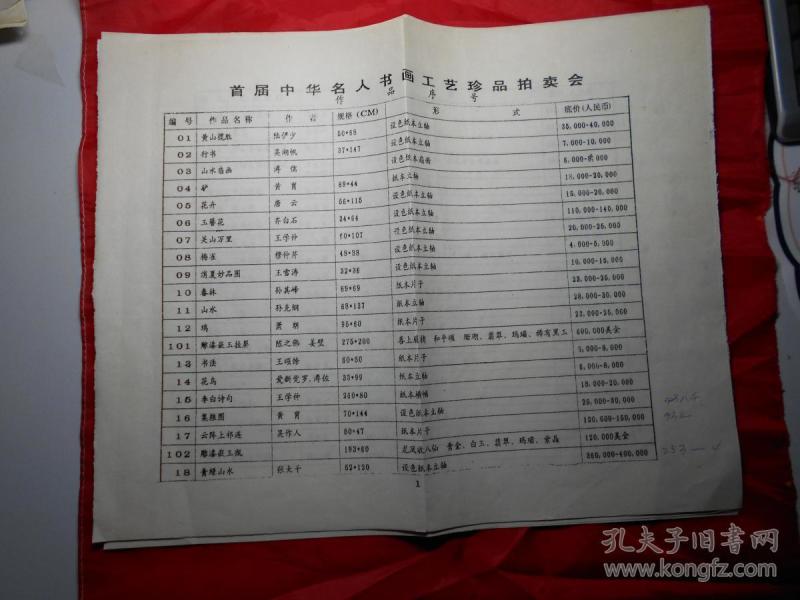 首届中华名人书画工艺珍品拍卖会
作品序号
编号 作品名称 作者 规格(CM) 形式 底价(人民币)
01 黄山揽胜 陆俨少 50*68 设色纸本立轴 35,000-40,000
02 行书 吴湖帆 37*147 设色纸本立轴 7,000-10,000
03 山水扇面 溥儒 设色纸本扇面 6,000-
04 驴 黄胄 69*44 纸本立轴 18,000-20,000
05 花卉 唐云 56*115 设色纸本立轴 15,000-20,000
06 玉簪花 齐白石 34*64 设色纸本立轴 110,000-140,000
07 关山万里 王学仲 *107 设色纸本立轴 20,000-25,000
08 梅雀 穆仲芹 48*38 设色纸本立轴 4,000-5,000
09 消夏妙品图 王雪涛 32*36 设色纸本立轴 10,000-15,000
10 春林 孙其峰 69*69 纸本片子 23,000-25,000
11 山水 孙克纲 68*137 纸本立轴 28,000-30,000
12 鸡 萧朗 95*60 纸本片子 23,000-25,000
101 雕漆嵌玉挂屏 陈之佛 姜壁 275*200 喜上眉梢 和平颂 珊瑚、翡翠、玛瑙、稀有黑玉 600,000美金
13 书法 王颂馀 50*50 纸本片子 5,000-8,000
14 花鸟 爱新觉罗.溥佐 33*99 纸本立轴 6,000-8,000
15 李白诗句 王学仲 240*80 纸本横幅 18,000-20,000
16 集雅图 黄胄 70*144 设色纸本立轴 25,000-30,000
17 云阵上祁连 吴作人 60*47 纸本片子 120,000-150,000
102 雕漆嵌玉瓶 193*60 龙凤欢八仙 青金、白玉、翡翠、玛瑙、紫晶 120,000美金
18 青绿山水 张大千 62*130 设色纸本立轴 360,000-400,000
1
孔夫子旧书网
kongfz.com